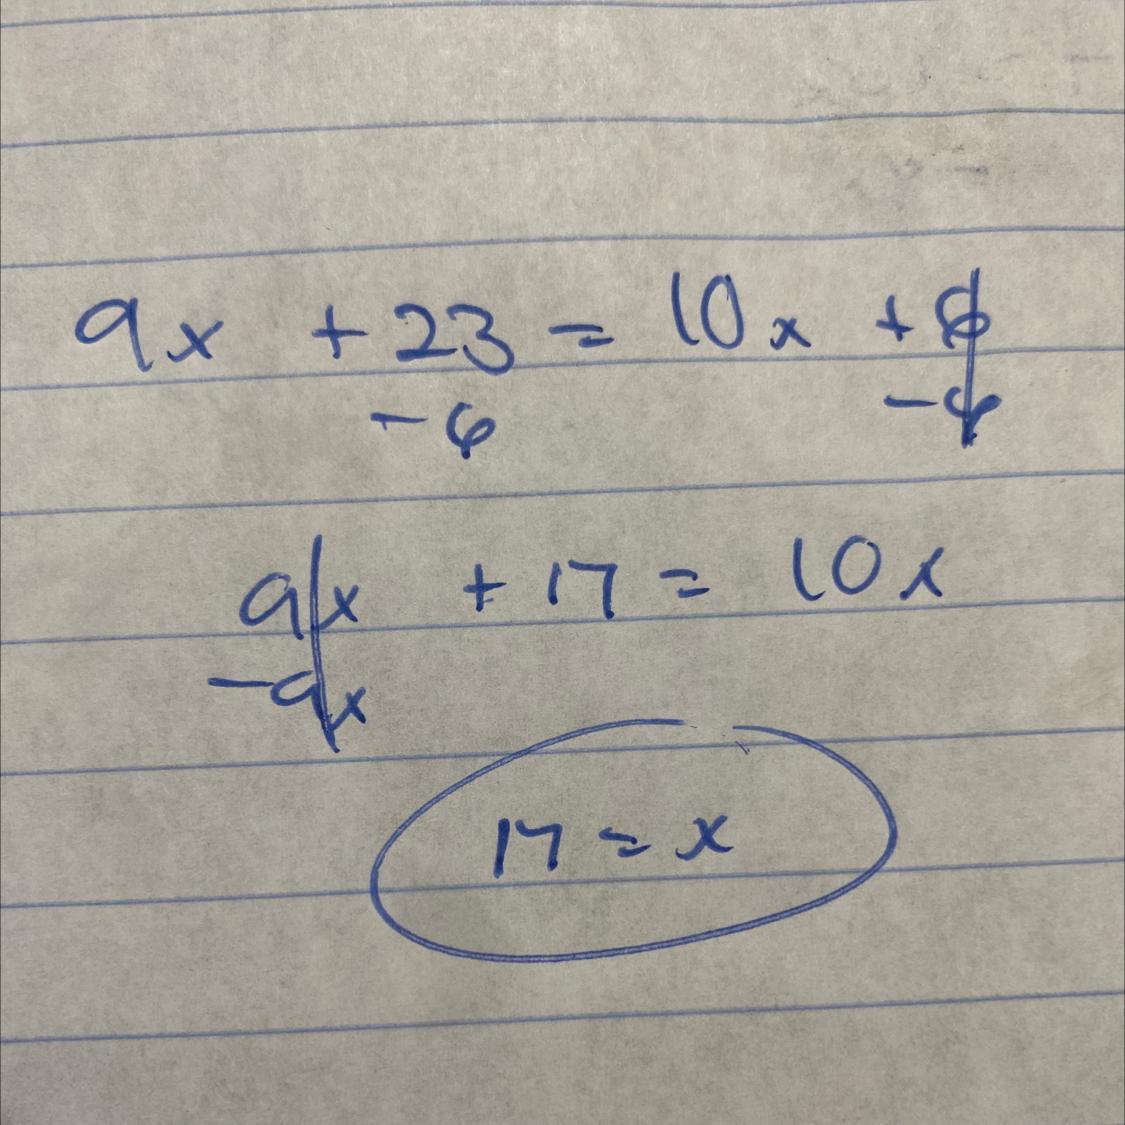 9x + 23 = 10x + 6
- 6 - 6
9x + 17 = 10x
- 9x
17 = x